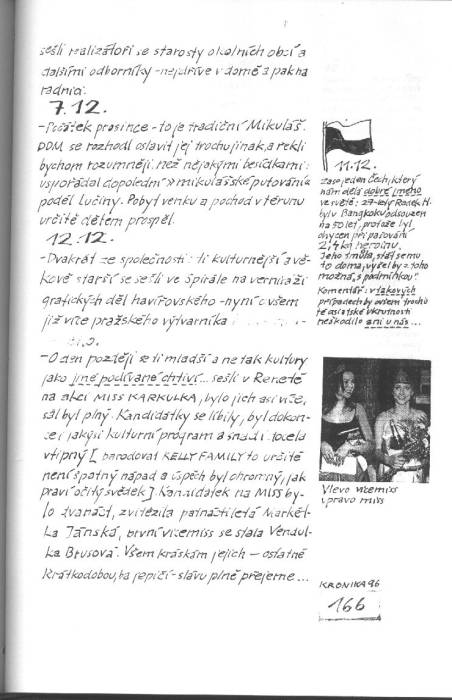 sešli realizátoři se starosty okolních obcí a
dalšími odborníky - nejdříve v domě a pak na
radnici.
7.12.
- Počátek prosince - to je tradiční Mikuláš.
DDM se rozhodl oslavit jej trochu jinak, a řekli
bychom rozumněji, než nějakými besídkami:
uspořádal dopolední » mikulášské putování «
podél Lučiny. Pobyt venku a pochod v terénu
určitě dětem prospěl.
12.12.
- Dvakrát ze společnosti: ti kulturnější a vě-
kově starší se sešli ve Spirále na vernisáži
grafických děl havířovského - nyní ovšem
již více pražského výtvarníka
- O den později se ti mladší a ne tak kultury
jako jiné podívané chtiví... sešli v Renetě
na akci MISS KARKULKA, bylo jich asi více,
sál byl plný. Kandidátky se líbily, byl dokon-
ce i jakýsi kulturní program a snad i docela
vtipný [ parodovat KELLY FAMILY to určitě
není špatný nápad a úspěch byl ohromný, jak
praví očitý svědek ]. Kandidátek na MISS by-
lo dvanáct, zvítězila patnáctiletá Markét-
ka Jánská, první vicemiss se stala Vendul-
ka Brusová. Všem kráskám jejich - ostatně
krátkodobou, ba jepičí - slávu plně přejeme...
11.12.
Zaso jeden Čech, který
nám dělá dobré jméno
ve světě: 27-letý Radek H.
byl v Bangkoku odsouzen
na 50 let, protože byl
chycen při pašování
2,4 kg heroinu.
Jeho smůla, stát se mu
to doma, vyšel by z toho
možná, s podmínkou!
Komentář: v takových
případech by ovšem trochu
té asiatské ukrutnosti
neškodilo ani u nás ...
Vlevo vicemiss
vpravo miss
KRONIKA 96
166